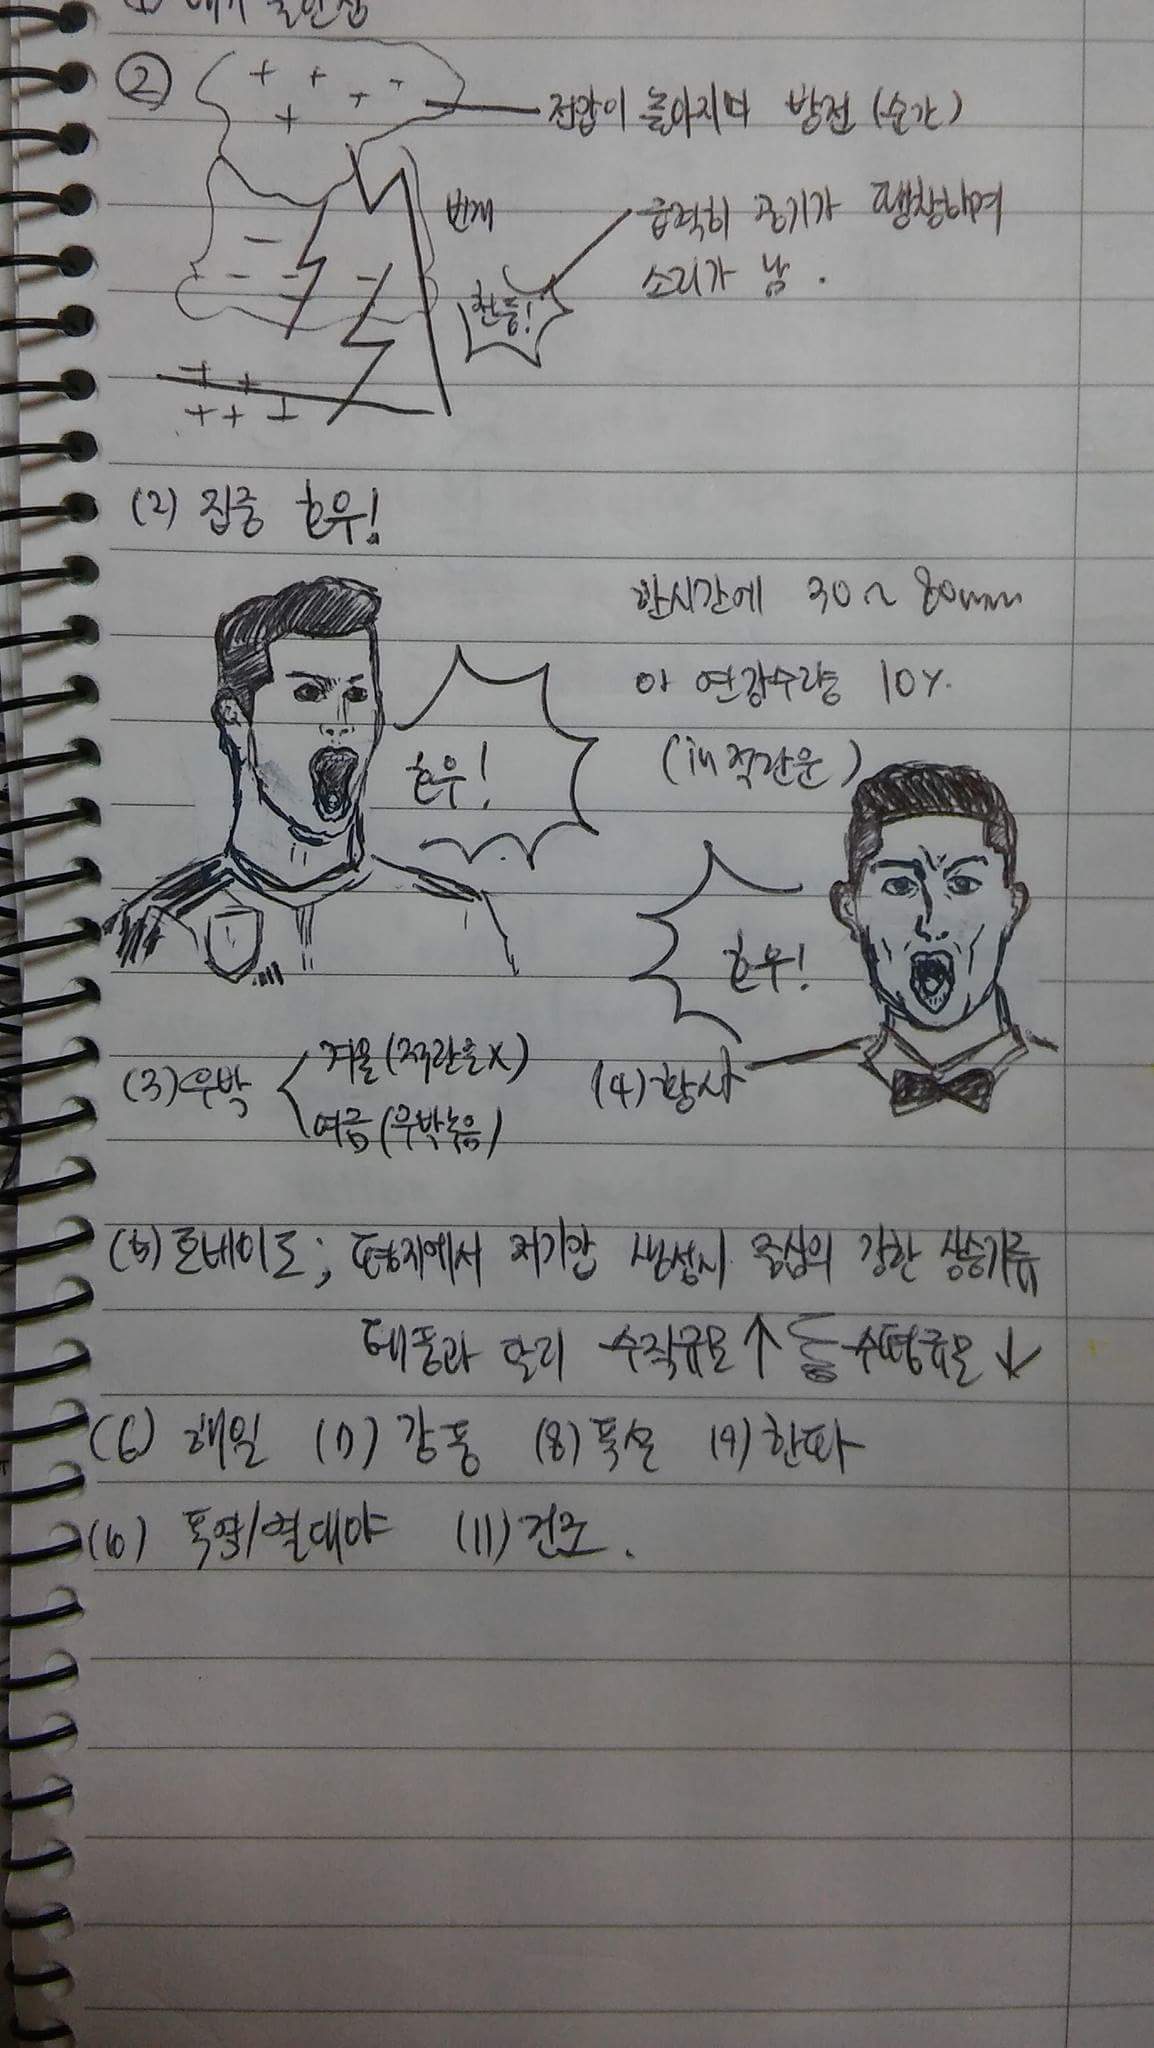 ② 전압이 높아지며 방전 (순간)
번개
급격히 공기가 팽창하며
소리가 남.
천둥!
(2) 집중 호우!
한시간에 30~80mm
or 연강수량 10%.
(in 적란운)
호우!
호우!
(3) 우박
겨울 (적란운X)
여름 (우박녹음)
(4) 황사
(5) 토네이도; 평지에서 저기압 생성시 중심의 강한 상승기류
태풍과 달리 수직규모↑ 수평규모↓
(6) 해일 (7) 강풍 (8) 폭설 (9) 한파
(10) 폭염/열대야 (11) 건조.